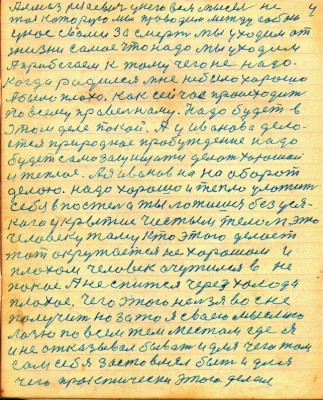 у него вся мысль не
той которую мы проводим между собою
у нас своим За смерть мы уходим от
жизни самое что надо мы уходим
А прибегаем к тому чего не надо.
Когда родился мне не было хорошо
А было плохо. Как сейчас происходит
по всему правельному. Надо будет в
этом деле покой. А у иванова дело-
ется природное пробуждение надо
будет само защищати делат хорошой
и теплое. А я иванов на на оборот
делою. надо хорошо и тепло уложит
себя в постел а ты лотиш без уся-
кого укрытие чистым телом это
человеку тому кто этого делает
тот окружается не хорошом и
плохом человек очутился в не
покое А не спится через холод и
плохое, чего этого нелзя во сне
получит но за то я своею мыслию
лазю по всем тем местам где я
и не отказывал бывать и для чего том
сам себя заставлял быть и для
чего практически этого делал